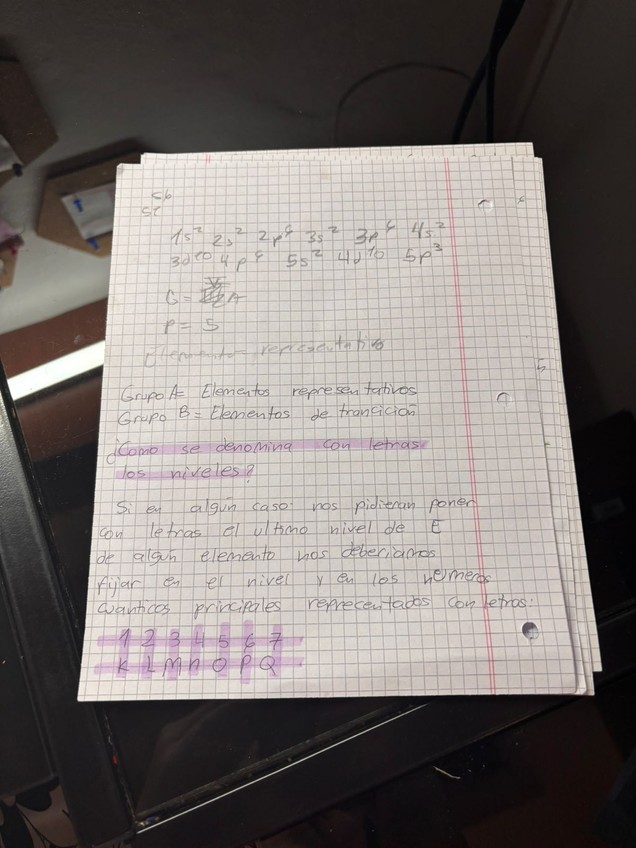 Sb
51
1s² 2s² 2p⁶ 3s² 3p⁶ 4s²
3d¹⁰ 4p⁶ 5s² 4d¹⁰ 5p³
G = A
P = 5
Elementos representativos
Grupo A= Elementos representativos
Grupo B = Elementos de trancición
¿Como se denomina con letras
los niveles?
Si en algún caso nos pidieran poner
con letras el ultimo nivel de E
de algún elemento nos deberiamos
fijar en el nivel y en los números
cuanticos principales reprecentados con letras:
1 2 3 4 5 6 7
K L M n O P Q